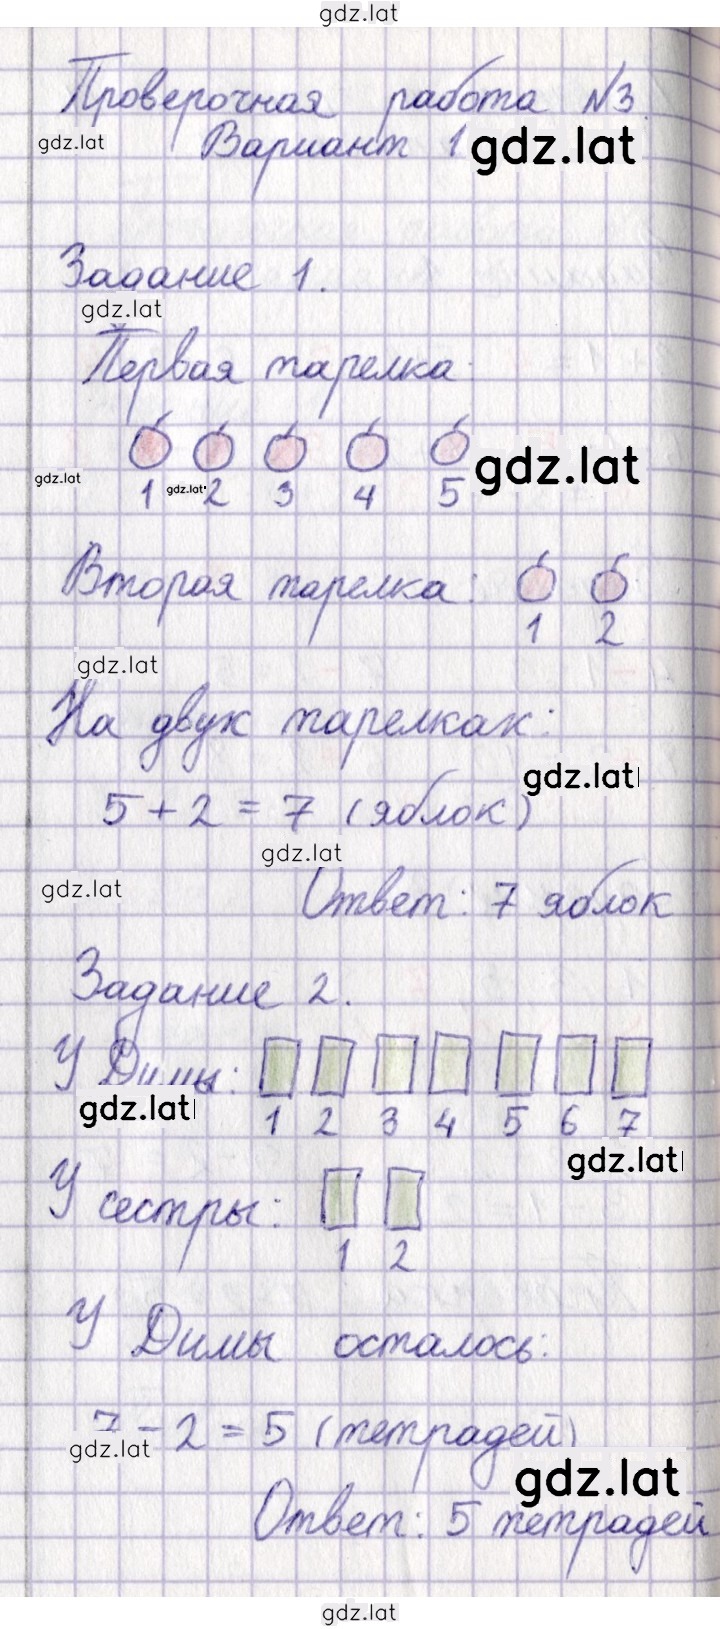 gdz.lat
Проверочная работа №3.
gdz.lat Вариант 1 gdz.lat
Задание 1.
gdz.lat
Первая тарелка:
gdz.lat
gdz.lat 1 gdz.lat 2 3 4 5
Вторая тарелка:
1 2
gdz.lat
На двух тарелках:
gdz.lat
5 + 2 = 7 (яблок)
gdz.lat
gdz.lat
Ответ: 7 яблок
Задание 2.
У Димы:
gdz.lat 1 2 3 4 5 6 7
gdz.lat
У сестры:
1 2
У Димы осталось:
7 - 2 = 5 (тетрадей)
gdz.lat
gdz.lat
Ответ: 5 тетрадей
gdz.lat